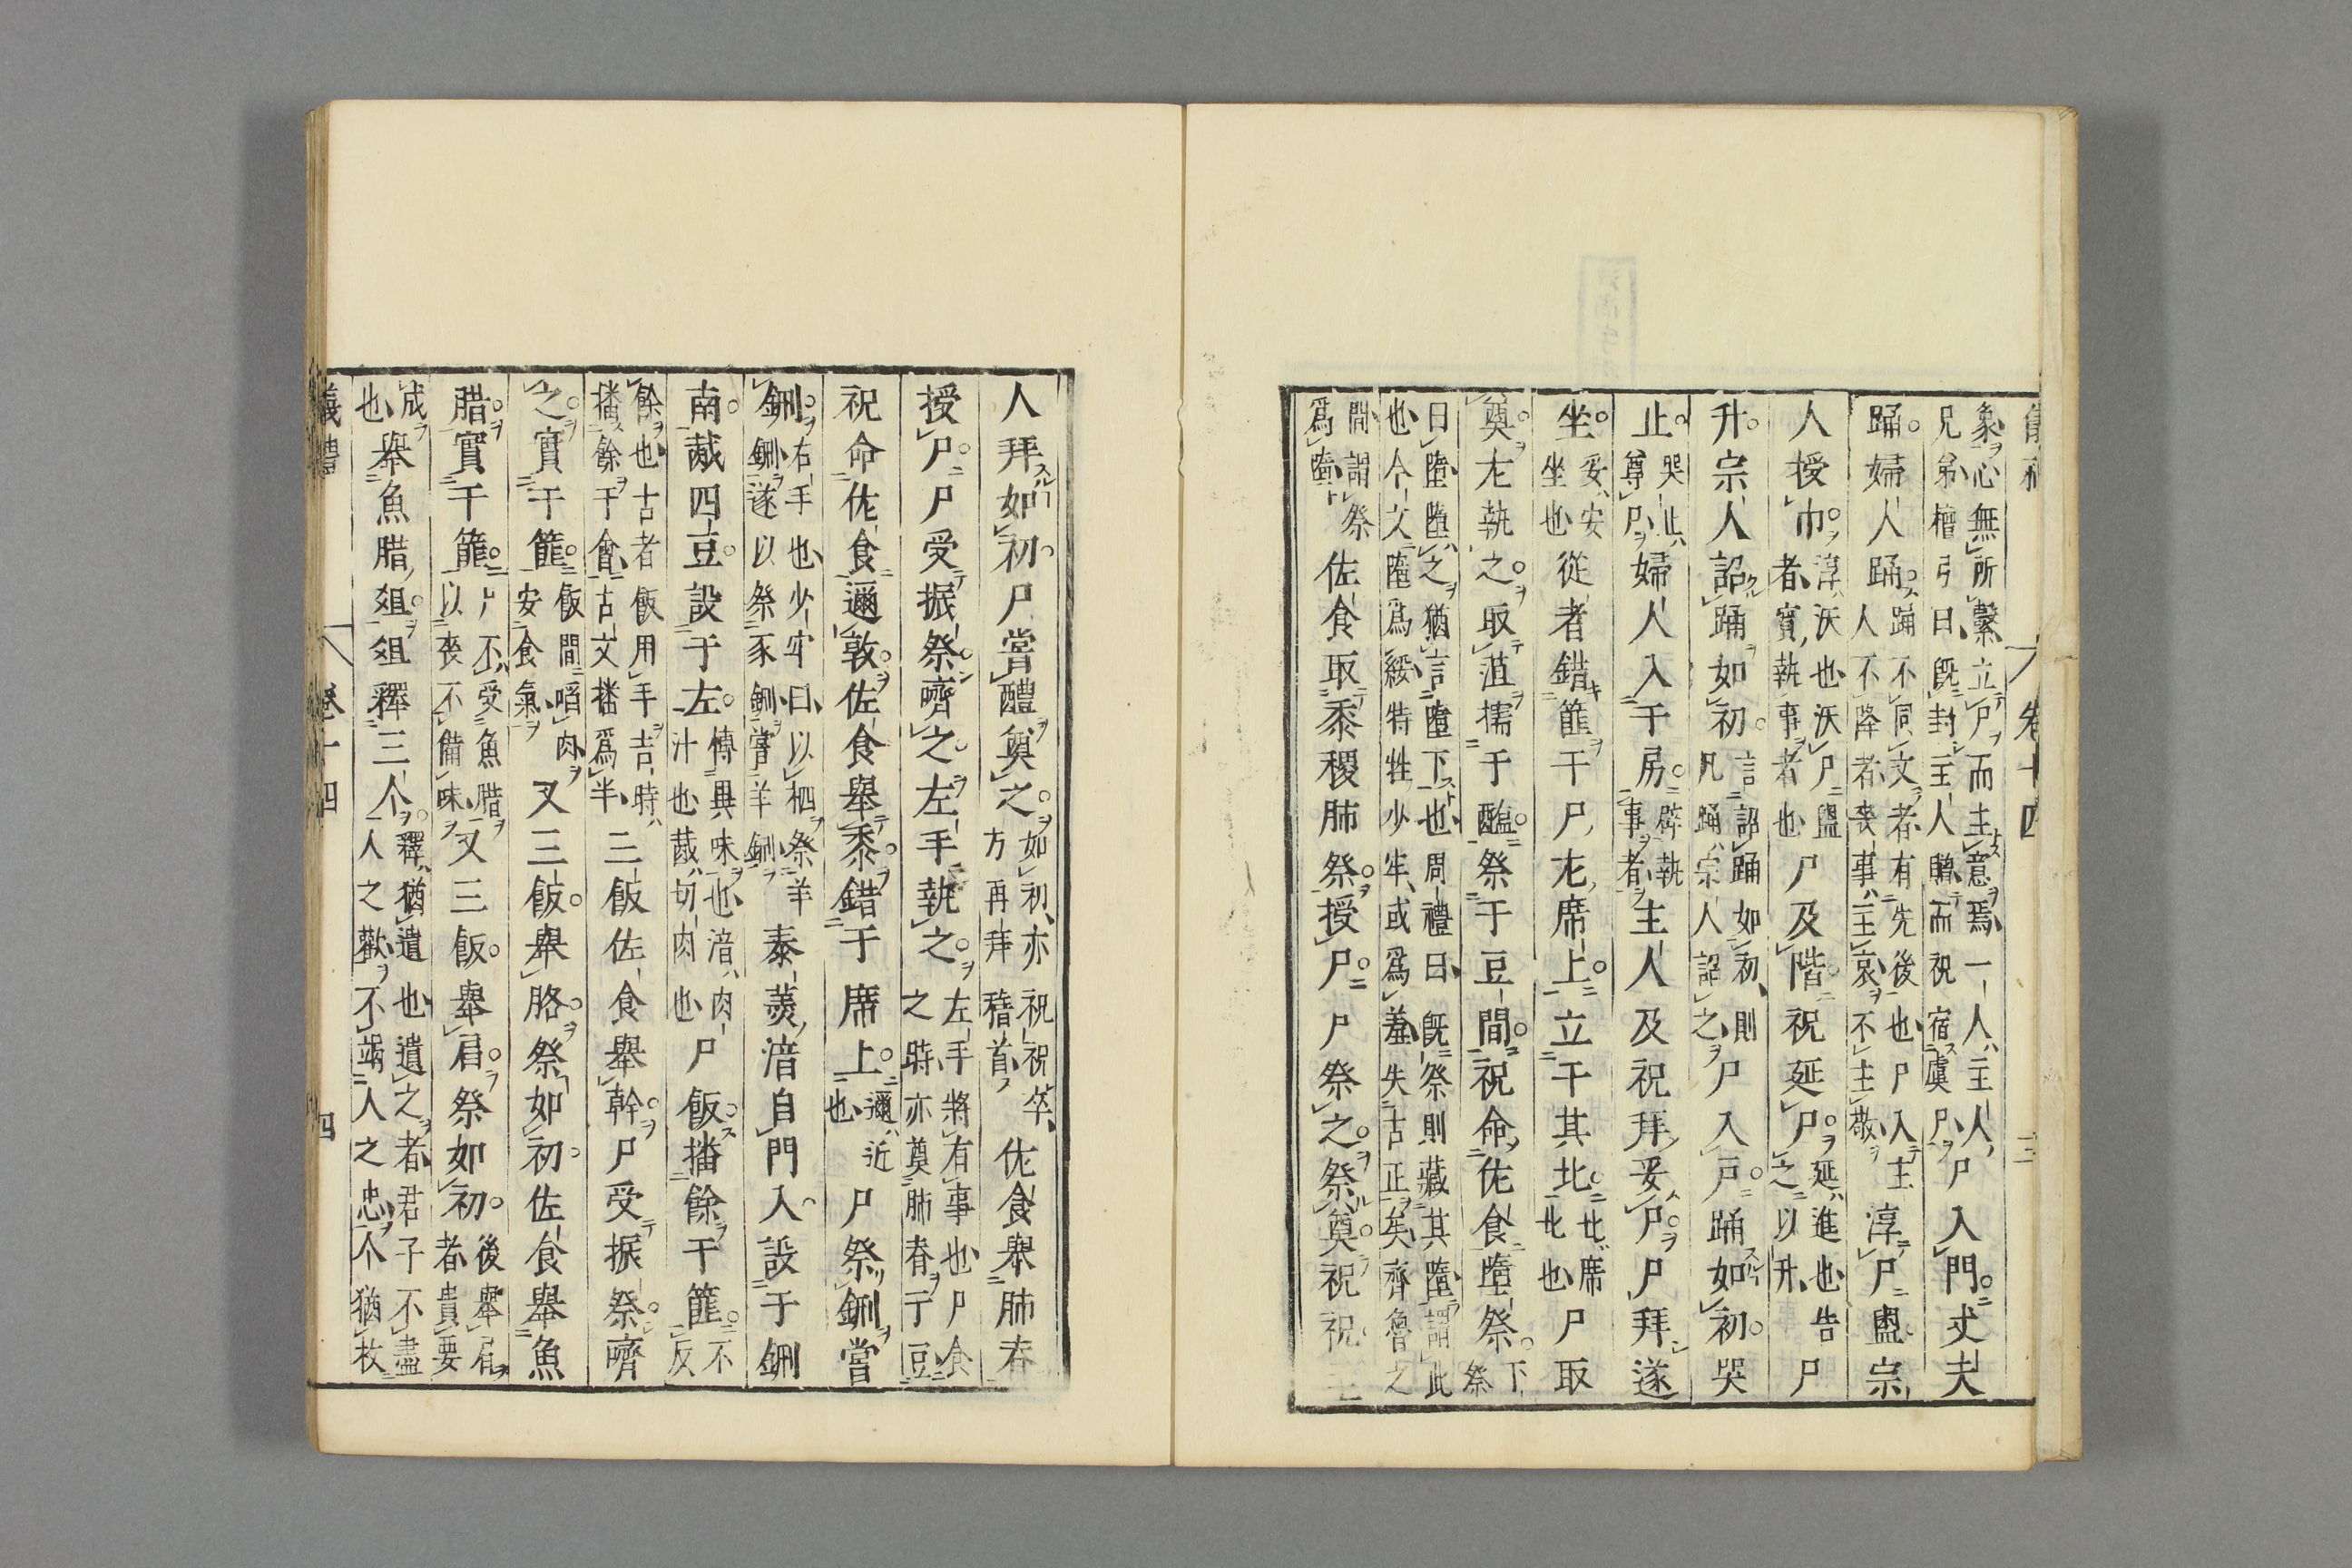 卷十四
象心無所繫立尸而主意焉一人主人
兄弟檀弓曰旣封主人贈而祝宿虞尸尸入門丈夫
踊婦人踊踊不同文者有先後也尸入主人不降者喪事主哀不主敬淳尸盥宗
人授巾淳沃也沃尸盥者賓執事者也尸及階祝延尸延進也告之以升尸
升宗人詔踊如初言詔踊如初則凡踊宗人詔之尸入戶踊如初哭
止哭止尊尸婦人入于房辟執事者主人及祝拜妥尸尸拜遂
坐妥安坐也從者錯篚于尸左席上立于其北北席北也尸取
奠左執之取菹擩于醢祭于豆間祝命佐食墮祭下祭
曰墮墮之猶言墮下也周禮曰旣祭則藏其墮謂此
也今文墮爲綏特牲少牢或爲羞失古正矣齊魯之
間謂祭爲墮佐食取黍稷肺祭授尸尸祭之祭奠祝祝主
人拜如初尸嘗醴奠之如初亦祝祝卒方再拜稽首佐食舉肺脊
授尸尸受振祭嚌之左手執之左手將有事也尸食之時亦奠肺脊于豆
祝命佐食邇敦佐食舉黍錯于席上邇近也尸祭鉶嘗
鉶右手也少牢曰以柶祭羊鉶遂以祭豕鉶嘗羊鉶泰羹湇自門入設于鉶
南胾四豆設于左博異味也湇肉汁也胾切肉也尸飯播餘于篚不反
餘也古者飯用手吉時播餘于會古文播爲半三飯佐食舉幹尸受振祭嚌
之實于篚飯間啗肉安食氣又三飯舉胳祭如初佐食舉魚
腊實于篚尸不受魚腊以喪不備味又三飯舉肩祭如初後舉肩者貴要
成也舉魚腊俎俎釋三个釋猶遺也遺之者君子不盡人之歡不竭人之忠个猶枚
儀禮 卷十四 四